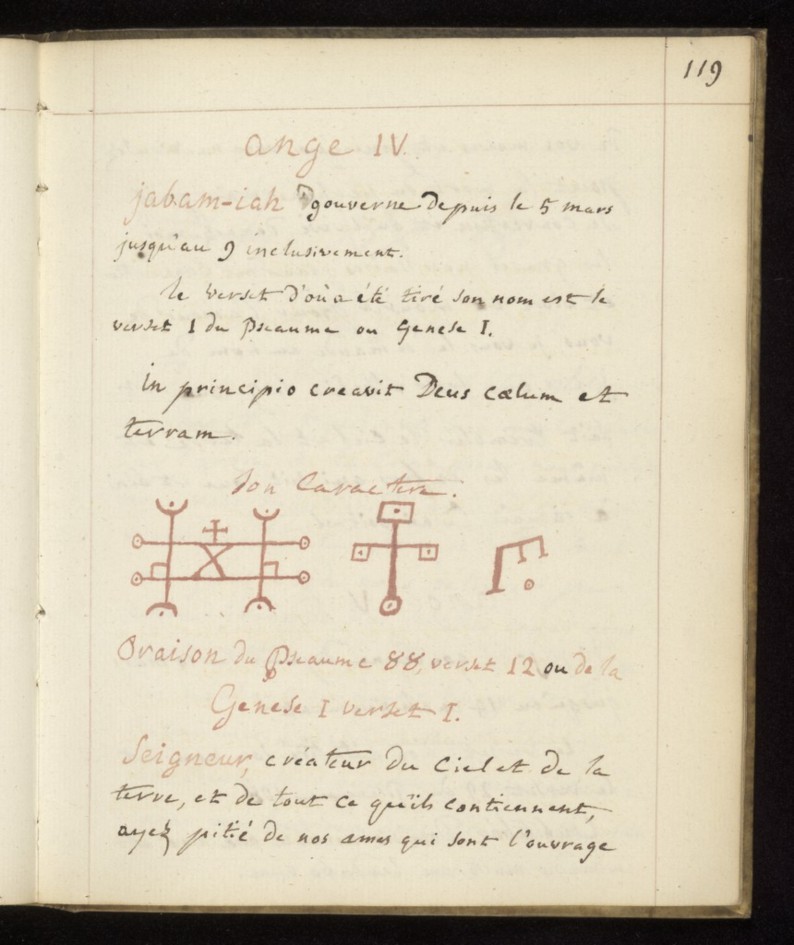 119
Ange IV.
jabam-iah gouverne Depuis le 5 mars
jusqu'au 9 inclusivement.
le verset D'où a été tiré son nom est le
verset 1 du Pseaume ou Genese I.
In principio creavit Deus cœlum et
terram.
Son Caractere.
Oraison du Pseaume 88, verset 12 ou de la
Genese I verset I.
Seigneur, créateur du Ciel et de la
terre, et de tout ce qu'ils contiennent,
ayez pitié de nos ames qui sont l'ouvrage